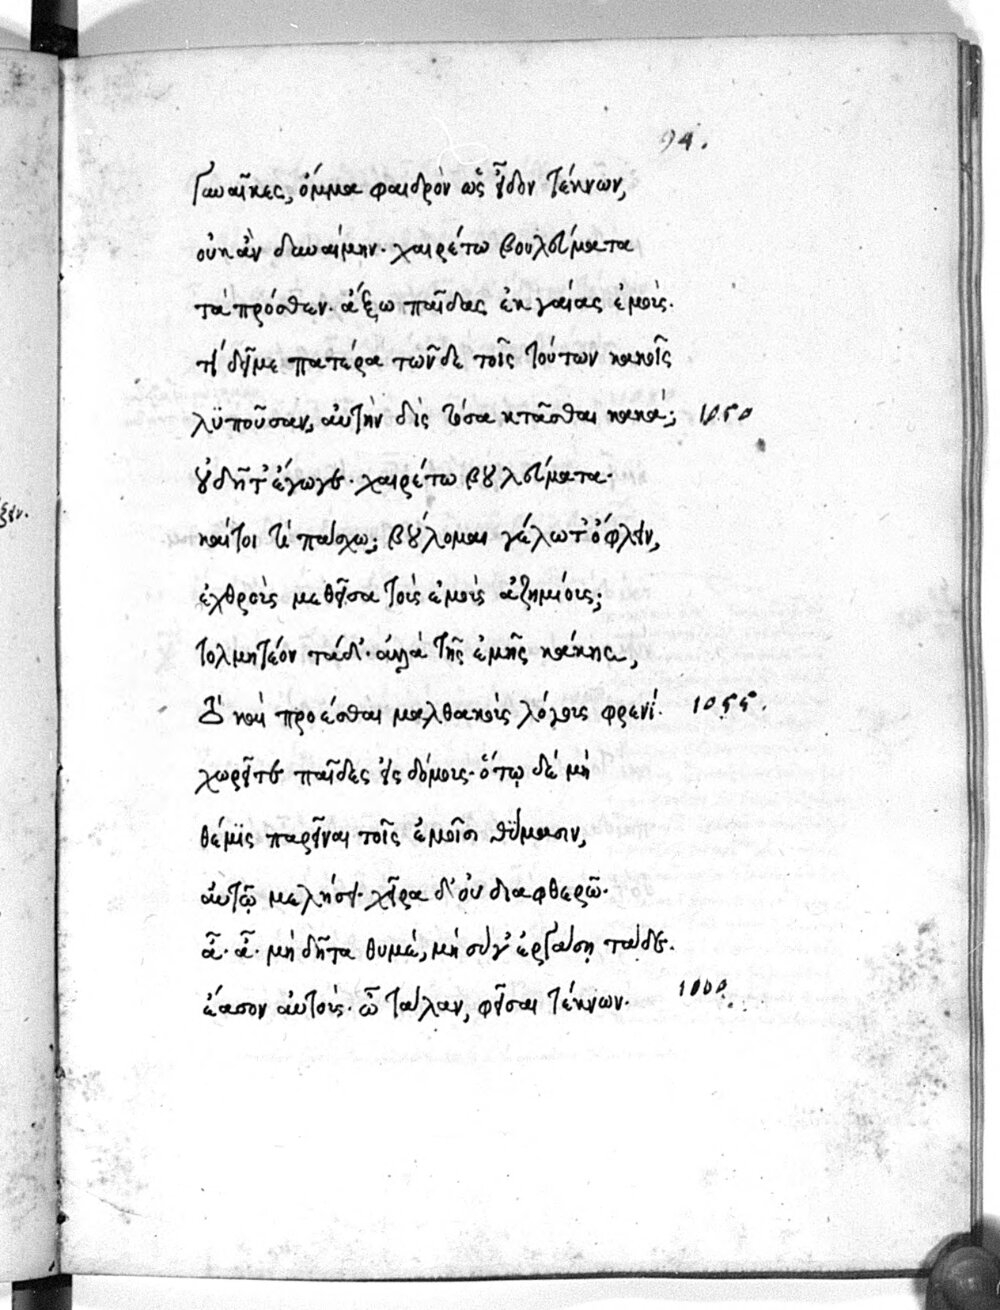 94.
Γυναῖκες, ὄμμα φαιδρὸν ὡς εἶδον τέκνων,
οὐκ ἂν δυναίμην· χαιρέτω βουλεύματα
τὰ πρόσθεν· ἄξω παῖδας ἐκ γαίας ἐμούς.
τί δεῖ με πατέρα τῶνδε τοῖς τούτων κακοῖς
λυποῦσαν, αὐτὴν δὶς τόσα κτᾶσθαι κακά; 1050
οὐ δῆτ' ἔγωγε· χαιρέτω βουλεύματα·
καίτοι τί πάσχω; βούλομαι γέλωτ' ὀφλεῖν,
ἐχθροὺς μεθεῖσα τοὺς ἐμοὺς ἀζημίους;
τολμητέον τάδ'· ἀλλὰ τῆς ἐμῆς κάκης,
τὸ καὶ προέσθαι μαλθακοὺς λόγους φρενί. 1055.
χωρεῖτε παῖδες εἰς δόμους· ὅτῳ δὲ μὴ
θέμις παρεῖναι τοῖς ἐμοῖσι θύμασιν,
αὐτῷ μελήσει· χεῖρα δ' οὐ διαφθερῶ·
ἆ· ἆ· μὴ δῆτα θυμέ, μὴ σύγ' ἐργάσῃ τάδε.
ἔασον αὐτούς· ὦ τάλαν, φεῖσαι τέκνων· 1060.